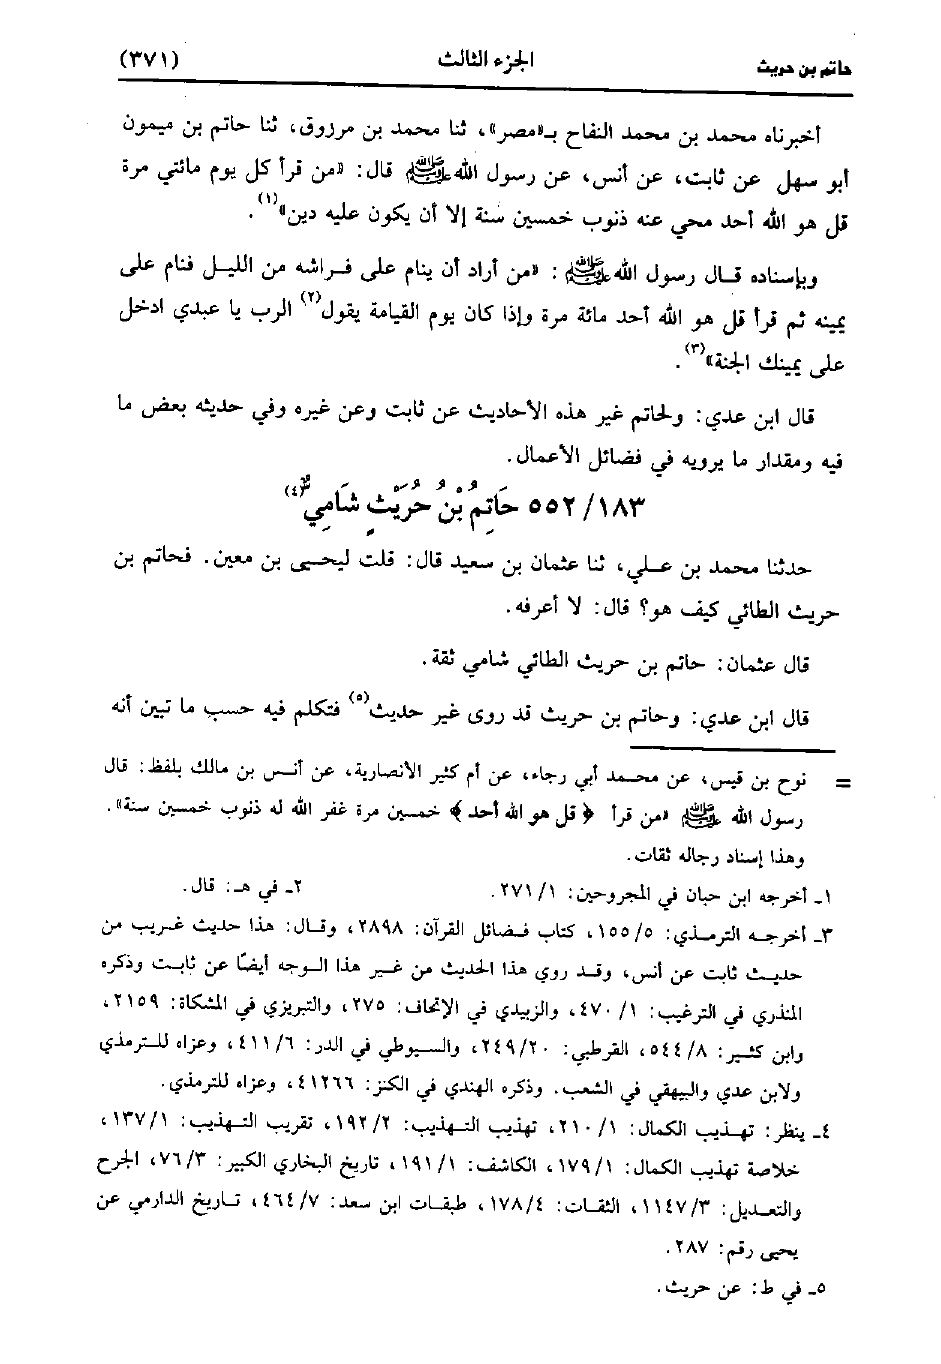 حاتم بن حريث الجزء الثالث (٣٧١)
أخبرناه محمد بن محمد النفاح بـ«مصر»، ثنا محمد بن مرزوق، ثنا حاتم بن ميمون
أبو سهل عن ثابت، عن أنس، عن رسول الله ﷺ قال: «من قرأ كل يوم مائتي مرة
قل هو الله أحد محي عنه ذنوب خمسين سنة إلا أن يكون عليه دين»(١).
وبإسناده قال رسول الله ﷺ : «من أراد أن ينام على فراشه من الليل فنام على
يمينه ثم قرأ قل هو الله أحد مائة مرة وإذا كان يوم القيامة يقول(٢) الرب يا عبدي ادخل
على يمينك الجنة»(٣).
قال ابن عدي: ولحاتم غير هذه الأحاديث عن ثابت وعن غيره وفي حديثه بعض ما
فيه ومقدار ما يرويه في فضائل الأعمال.
٥٥٢/١٨٣ حَاتِمُ بْنُ حُرَيْثٍ شَامِيٌّ(٤)
حدثنا محمد بن علي، ثنا عثمان بن سعيد قال: قلت ليحيى بن معين. فحاتم بن
حريث الطائي كيف هو؟ قال: لا أعرفه.
قال عثمان: حاتم بن حريث الطائي شامي ثقة.
قال ابن عدي: وحاتم بن حريث قد روى غير حديث(٥) فتكلم فيه حسب ما تبين أنه
= نوح بن قيس، عن محمد أبي رجاء، عن أم كثير الأنصارية، عن أنس بن مالك بلفظ: قال
رسول الله ﷺ «من قرأ ﴿قل هو الله أحد﴾ خمسين مرة غفر الله له ذنوب خمسين سنة».
وهذا إسناد رجاله ثقات.
١ـ أخرجه ابن حبان في المجروحين: ٢٧١/١. ٢ـ في هـ: قال.
٣ـ أخرجه الترمذي: ١٥٥/٥، كتاب فضائل القرآن: ٢٨٩٨، وقال: هذا حديث غريب من
حديث ثابت عن أنس، وقد روي هذا الحديث من غير هذا الوجه أيضًا عن ثابت وذكره
المنذري في الترغيب: ٤٧٠/١، والزبيدي في الإتحاف: ٢٧٥، والتبريزي في المشكاة: ٢١٥٩،
وابن كثير: ٥٤٤/٨، القرطبي: ٢٤٩/٢٠، والسيوطي في الدر: ٤١١/٦، وعزاه للترمذي
ولابن عدي والبيهقي في الشعب. وذكره الهندي في الكنز: ٤١٢٦٦، وعزاه للترمذي.
٤ـ ينظر: تهذيب الكمال: ٢١٠/١، تهذيب التهذيب: ١٩٢/٢، تقريب التهذيب: ١٣٧/١،
خلاصة تهذيب الكمال: ١٧٩/١، الكاشف: ١٩١/١، تاريخ البخاري الكبير: ٧٦/٣، الجرح
والتعديل: ١١٤٧/٣، الثقات: ١٧٨/٤، طبقات ابن سعد: ٤٦٤/٧، تاريخ الدارمي عن
يحيى رقم: ٢٨٧.
٥ـ في ط: عن حريث.